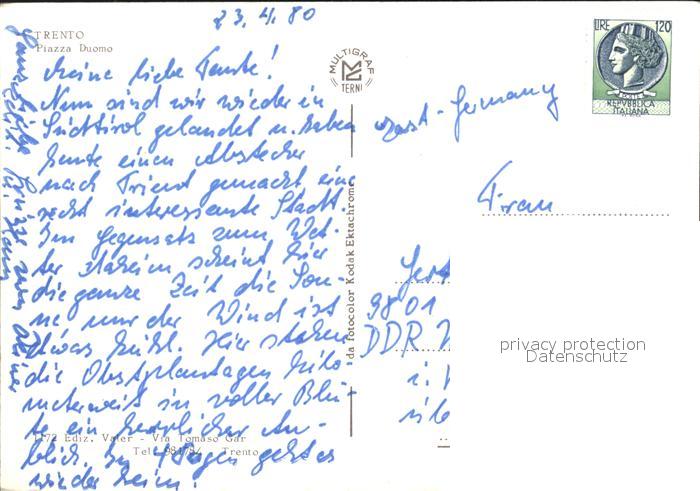 23.4.80
TRENTO
Piazza Duomo
Meine liebe Tante!
Nun sind wir wieder in
Südtirol gelandet u. haben
heute einen Abstecher
nach Trient gemacht, eine
recht interessante Stadt.
Im Gegensatz zum Wet-
ter daheim scheint hier
die ganze Zeit die Son-
ne nur der Wind ist
etwas kühl. Hier stehen
die Obstplantagen kilo-
meterweit in voller Blü-
te ein herrlicher An-
blick. In 4 Tagen geht es
wieder heim!
Grüsse von Deine
1172 Ediz. Vater - Via Tomaso Gar
Tel. Trento
MULTIGRAF
TERNI
da Fotocolor Kodak Ektachrome
LIRE 120
POSTE
REPVBBLICA
ITALIANA
East-Germany
Frau
9801
DDR
privacy protection
Datenschutz